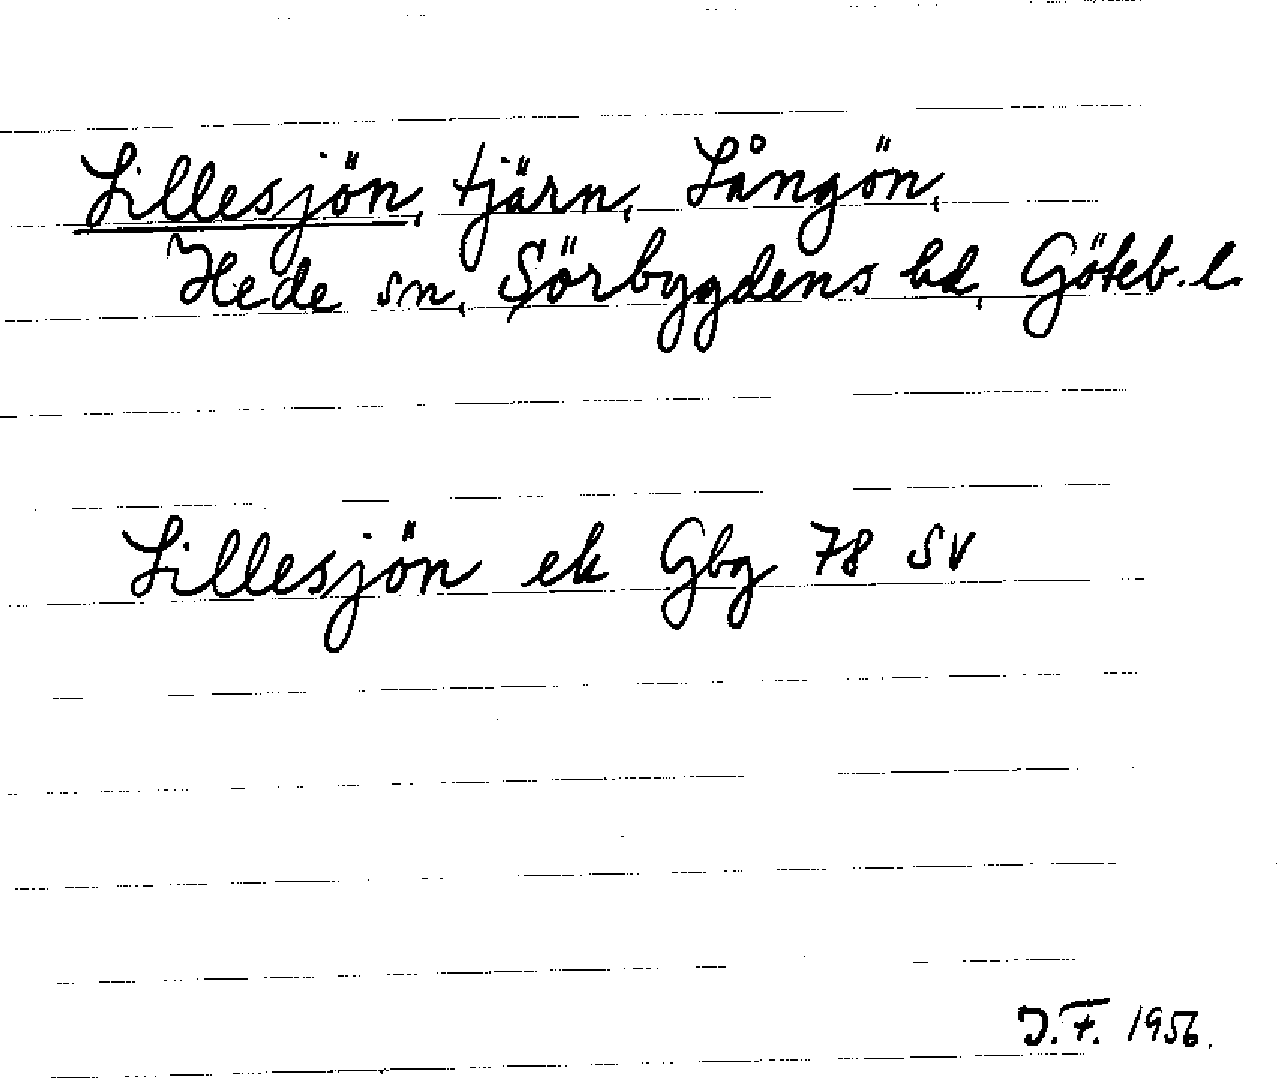 Lillesjön, tjärn, Långön,
Hede sn, Sörbygdens hd, Göteb. l.
Lillesjön ek Gbg 78 SV
J. F. 1956.